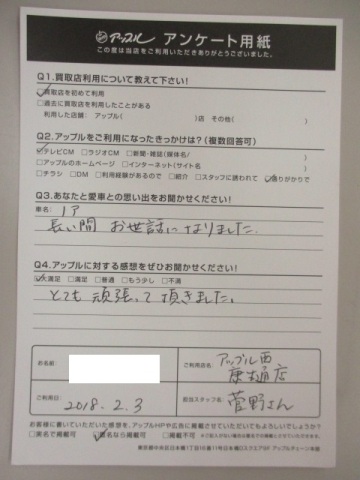 アップル アンケート用紙
この度は当店をご利用いただきありがとうございました。
Q1.買取店利用について教えて下さい!
☑買取店を初めて利用
□過去に買取店を利用したことがある
利用した店舗： アップル( )店 その他( )
Q2.アップルをご利用になったきっかけは?(複数回答可)
☑テレビCM □ラジオCM □新聞・雑誌(媒体名/ )
□アップルのホームページ □インターネット(サイト名 )
□チラシ □DM □利用経験があるので □紹介 □スタッフに誘われて ☑通りがかりで
Q3.あなたと愛車との思い出をお聞かせください!
車名：
長い間 お世話になりました.
Q4.アップルに対する感想をぜひお聞かせください!
☑大満足 □満足 □普通 □もう少し □不満
とても 頑張って頂きました。
お名前：
ご利用店名： アップル西
店
ご利用日： 2018. 2. 3
担当スタッフ名： 菅野さん
お客様に書いていただいた感想を、アップルHPや広告などに掲載させていただいてもよろしいでしょうか?
□実名で掲載可 ☑匿名なら掲載可 □掲載不可